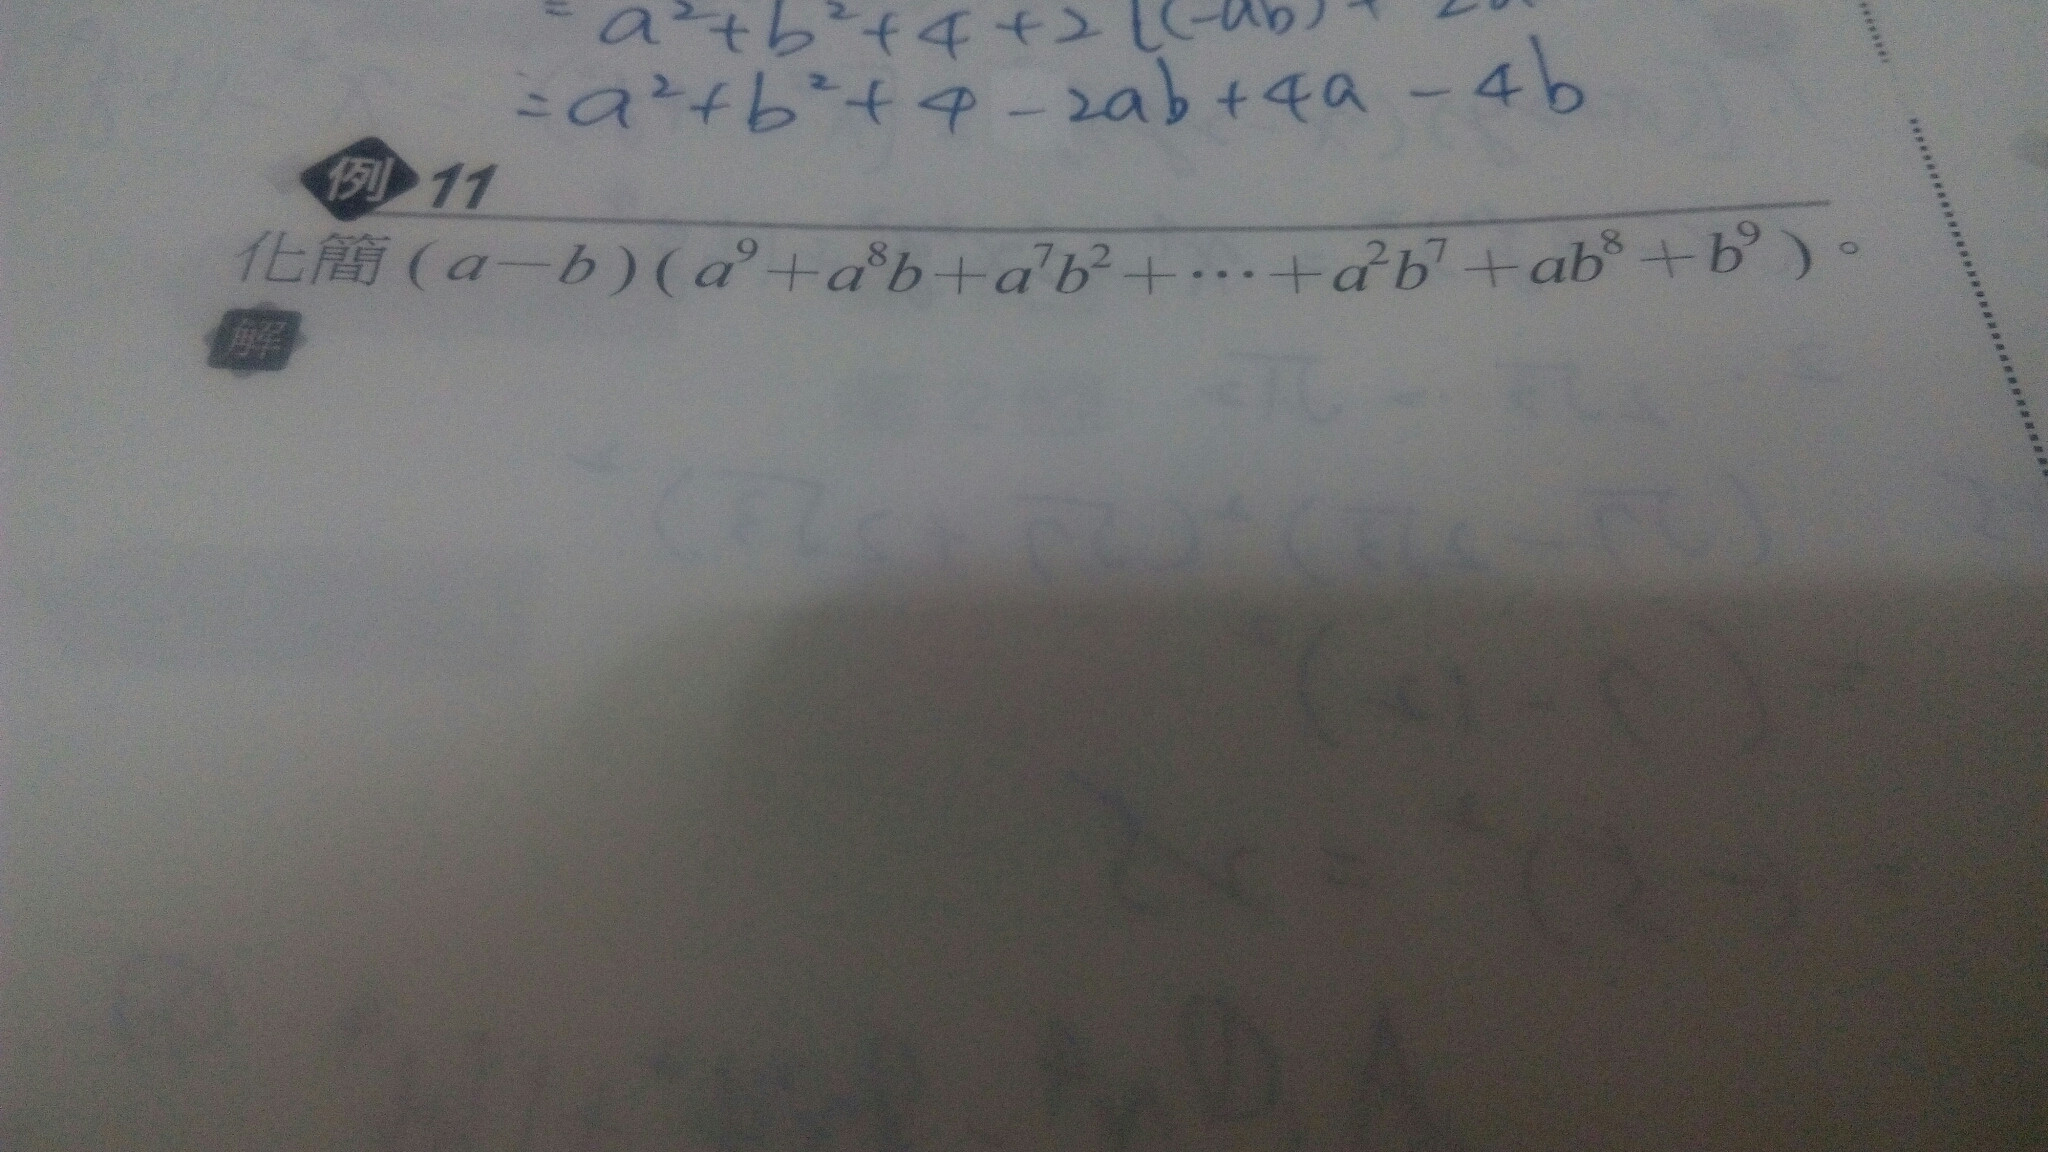 = a²+b²+4+2[(-ab)+2a
= a²+b²+4-2ab+4a-4b
例 11
化簡(a-b)(a⁹+a⁸b+a⁷b²+⋯+a²b⁷+ab⁸+b⁹)。
解